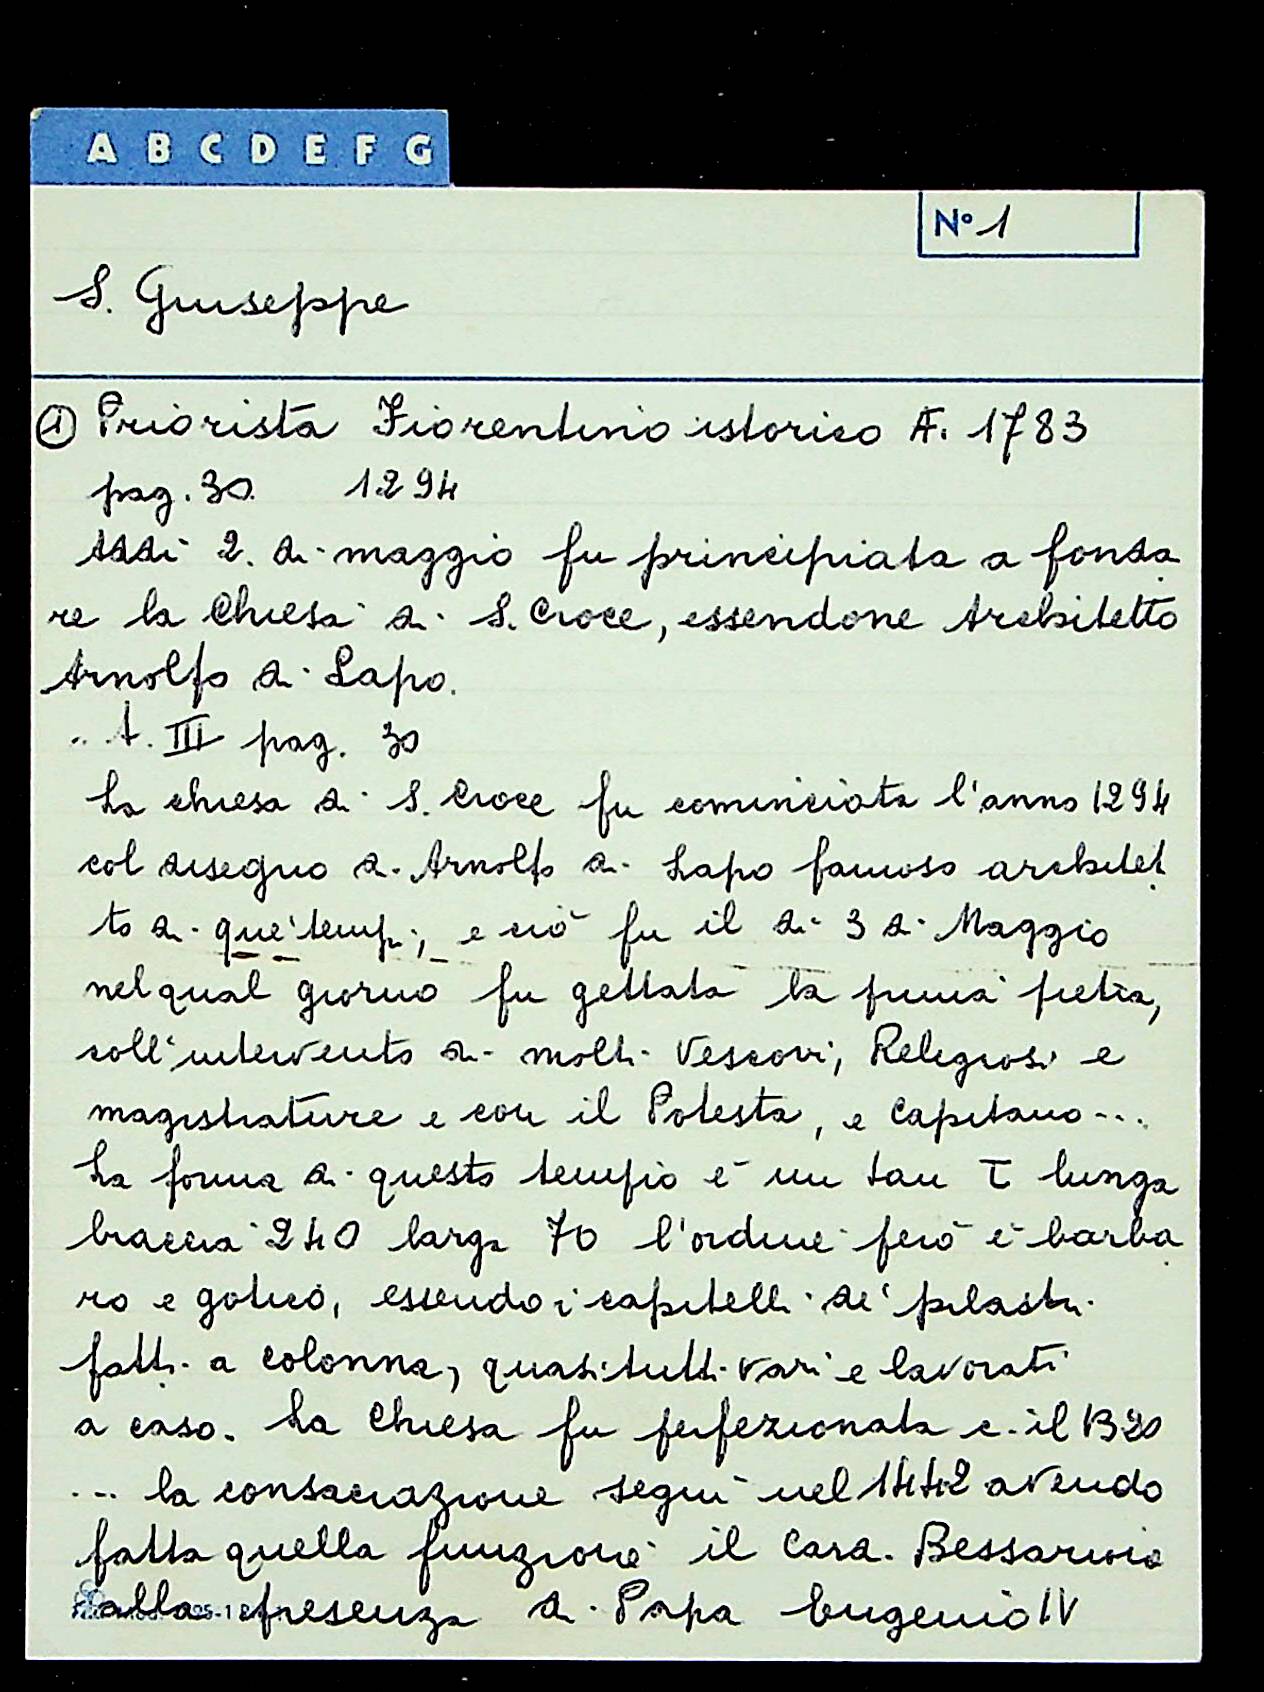 A B C D E F G
Nº 1
S. Giuseppe
① Priorista Fiorentino istorico F. 1783
pag. 30. 1294
Addi 2. di maggio fu principiata a fonda
re la Chiesa di S. Croce, essendone Architetto
Arnolfo di Lapo.
.. t. III pag. 30
La chiesa di S. Croce fu cominciata l'anno 1294
col disegno di Arnolfo di Lapo famoso architet
to di que' tempi, e ciò fu il di 3 di Maggio
nel qual giorno fu gettata la prima pietra,
coll'intervento di molti Vescovi, Religiosi e
magistrature e con il Potesta, e Capitano...
La forma di questo tempio è un tau T lunga
braccia 240 larga 70 l'ordine però è barba
ro e gotico, essendo i capitelli de' pilastri
fatti a colonna, quasi tutti vari e lavorati
a caso. La Chiesa fu perfezionata c. il 1320
... la consacrazione seguì nel 1442 avendo
fatta quella funzione il Card. Bessarione
alla presenza di Papa Eugenio IV